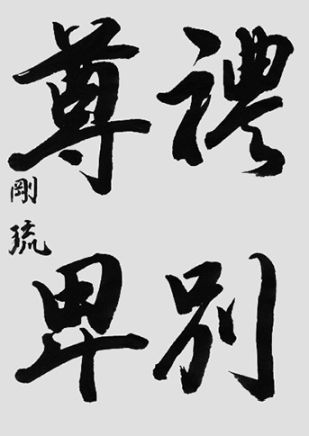 禮別
尊卑
剛琉